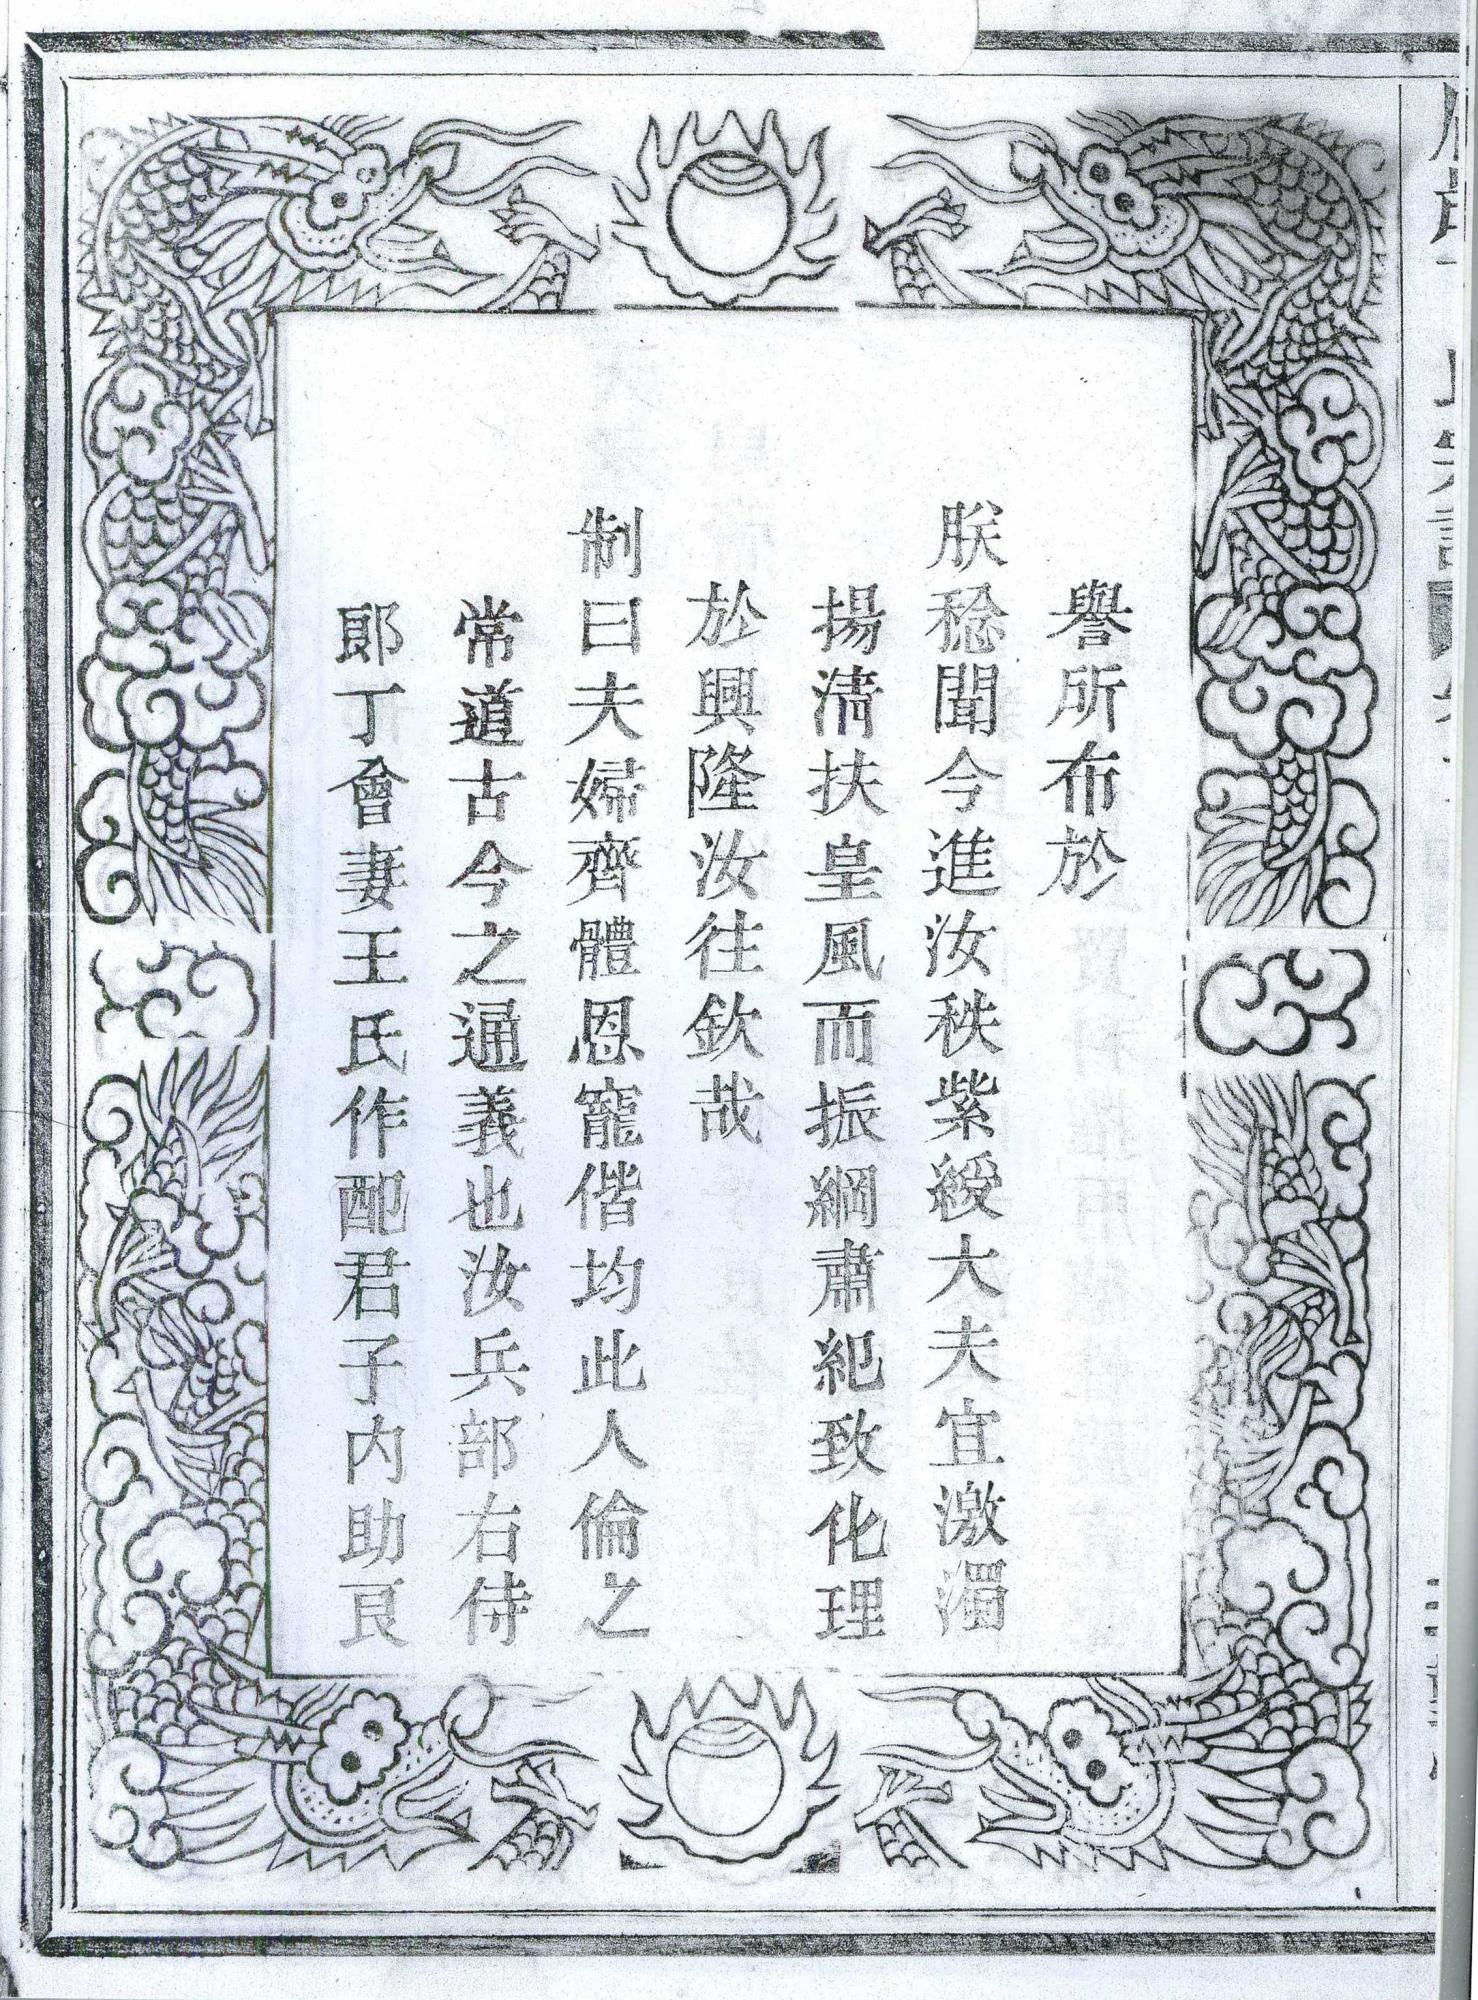 譽所布於
朕稔聞今進汝秩紫綬大夫宜激濁
揚清扶皇風而振綱肅紀致化理
於興隆汝往欽哉
制曰夫婦齊體恩寵偕均此人倫之
常道古今之通義也汝兵部右侍
郎丁會妻王氏作配君子内助良